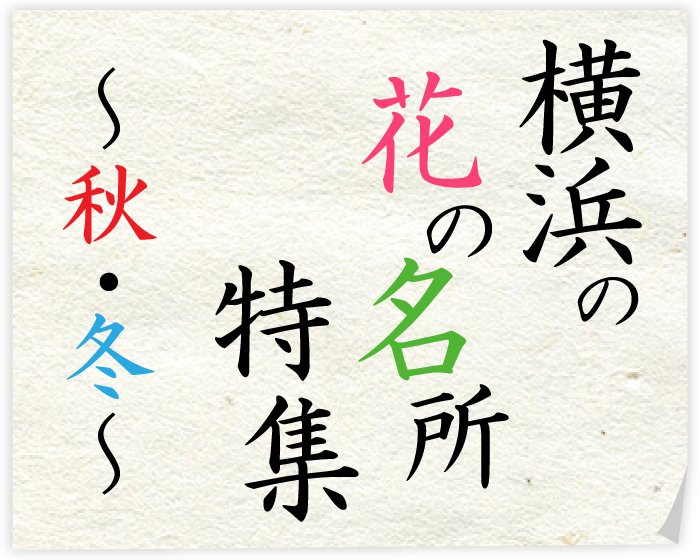 横浜の
花の名所
特集
～秋・冬～